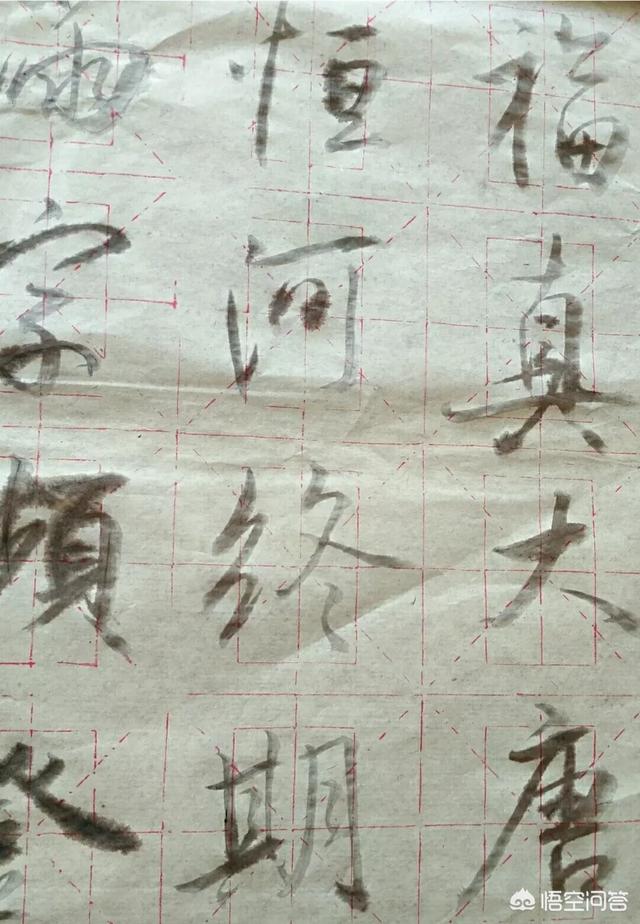 福真大唐
恒河終期
字
悟空问答